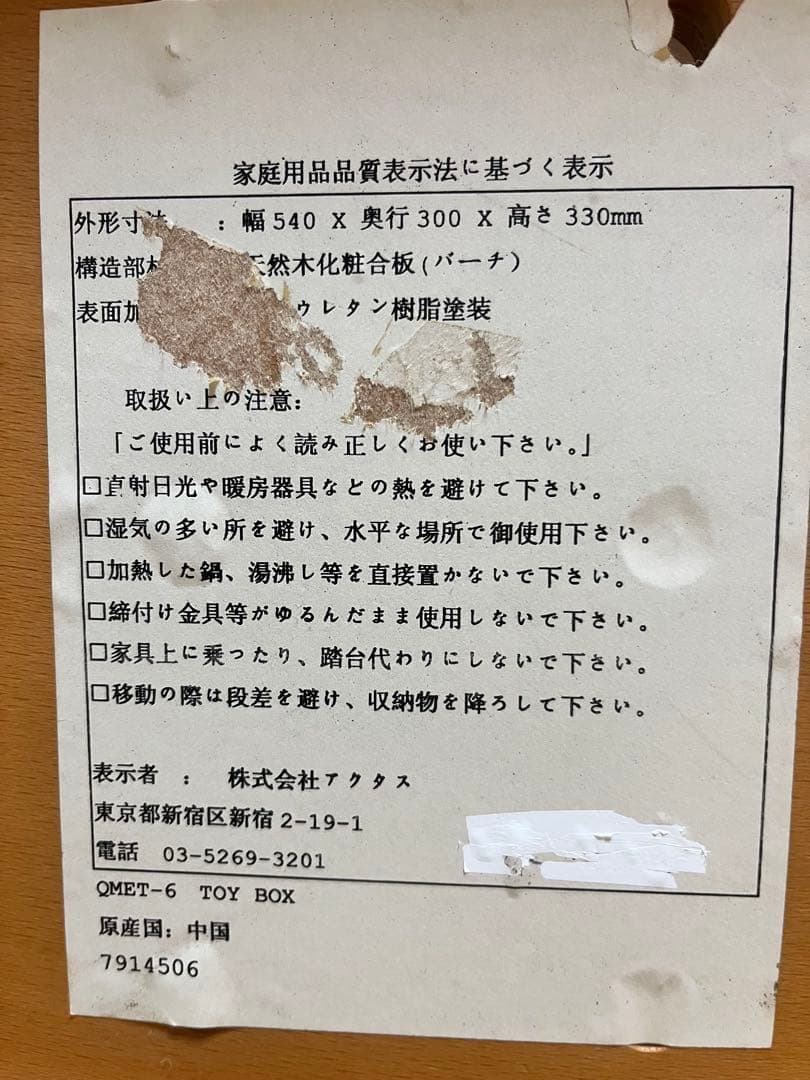 家庭用品品質表示法に基づく表示
外形寸法 : 幅540 X 奥行300 X 高さ330mm
構造部材 天然木化粧合板(バーチ)
表面加 ウレタン樹脂塗装
取扱い上の注意:
「ご使用前によく読み正しくお使い下さい。」
□直射日光や暖房器具などの熱を避けて下さい。
□湿気の多い所を避け、水平な場所で御使用下さい。
□加熱した鍋、湯沸し等を直接置かないで下さい。
□締付け金具等がゆるんだまま使用しないで下さい。
□家具上に乗ったり、踏台代わりにしないで下さい。
□移動の際は段差を避け、収納物を降ろして下さい。
表示者 : 株式会社アクタス
東京都新宿区新宿2-19-1
電話 03-5269-3201
QMET-6 TOY BOX
原産国: 中国
7914506